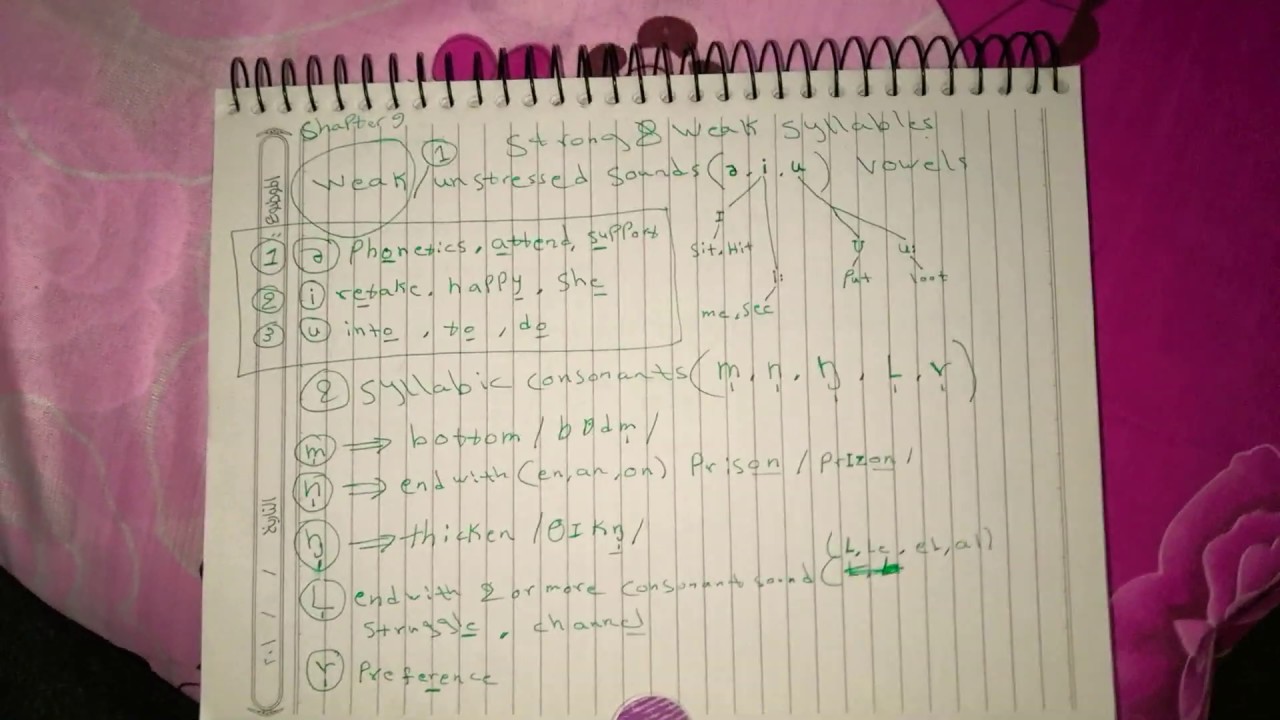 Chapter 9
Strong & weak syllables
weak / ① unstressed sounds (ə, i, u) vowels
① ə Phonetics, attend, support
② i retake, happy, she
③ u into, to, do
I
Sit, Hit
i:
me, see
ʊ
Put
u:
② syllabic consonants (m̩, n̩, ŋ̩, L̩, r̩)
m̩ ⇒ bottom /
n̩ ⇒ end with (en, an, on) Prison / Prizon /
ŋ̩ ⇒ thicken /θIKŋ̩/
(L, Le, eL, al)
L̩ end with 2 or more consonant sound (
struggle, channel
r̩ Preference
الموضوع:
التاريخ
/ / ١٤